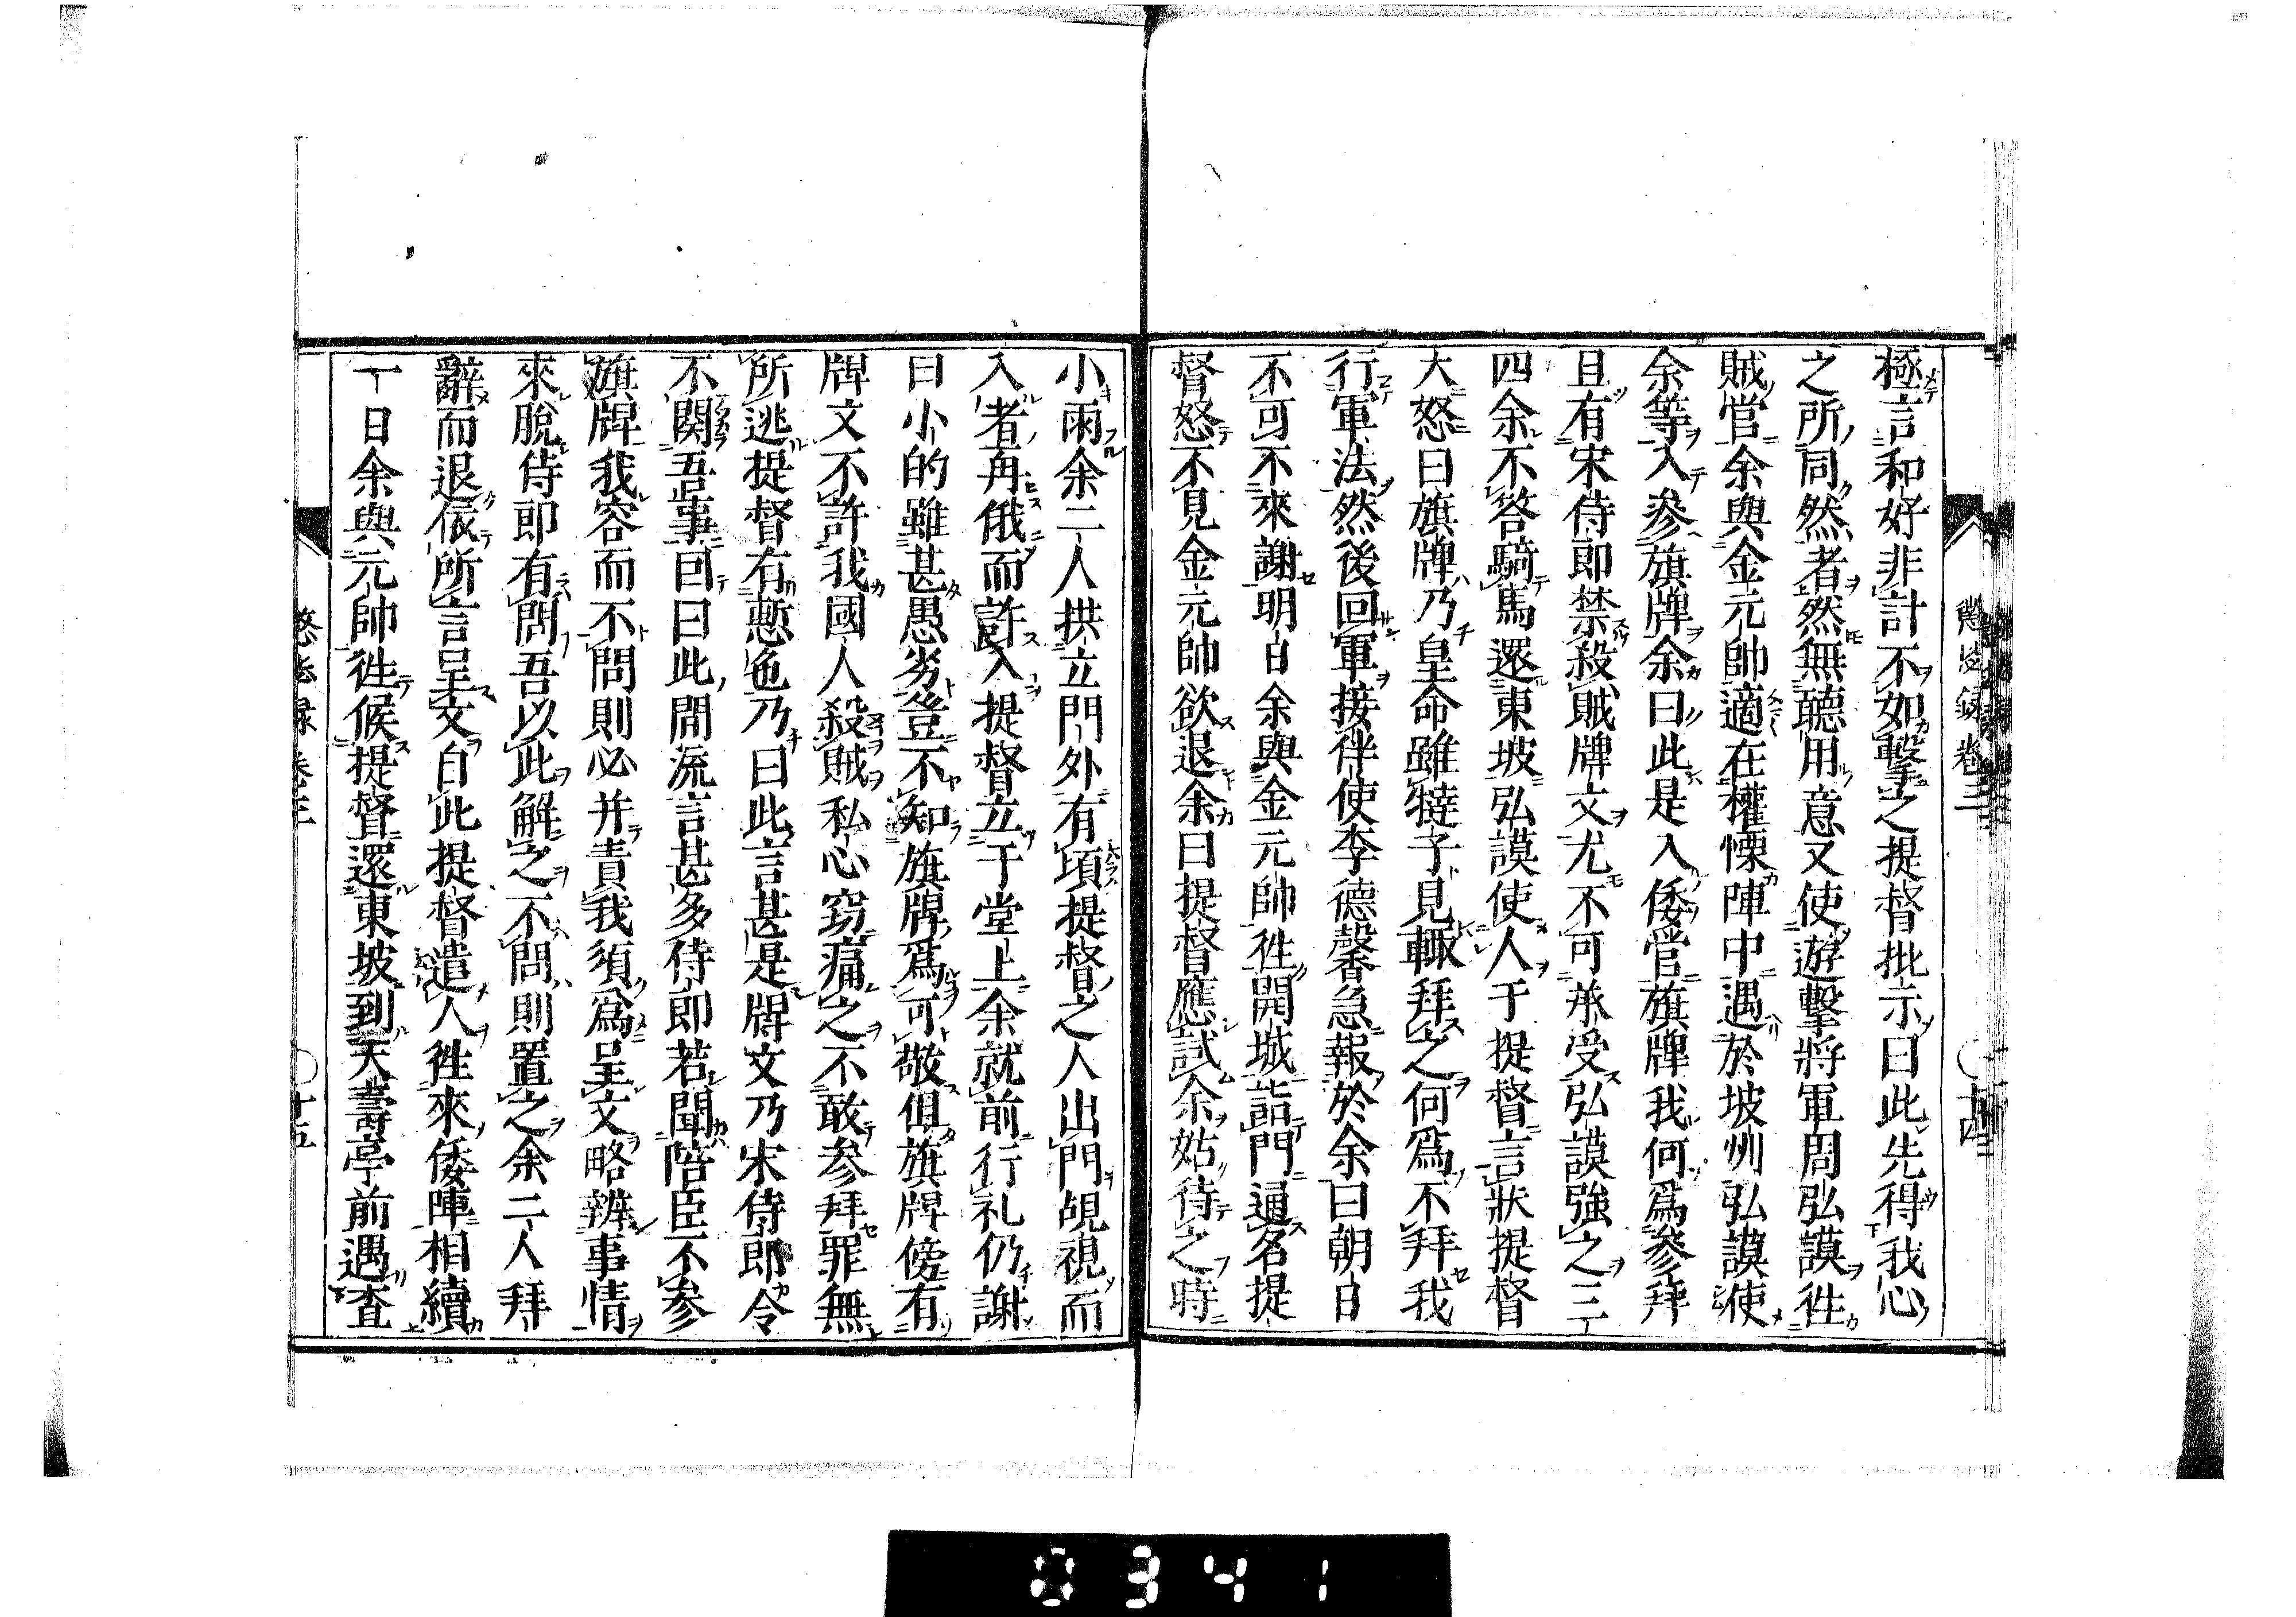 極言和好非計不如擊之提督批示曰此先得我心
之所同然者然無聽用意又使遊擊將軍周弘謨徃
賊營余與金元帥適在權慄陣中遇於坡州弘謨使
余等入參旗牌余曰此是入倭營旗牌我何爲參拜
且有宋侍郎禁殺賊牌文尤不可承受弘謨強之三
四余不答騎馬還東坡弘謨使人于提督言狀提督
大怒曰旗牌乃皇命雖㺚子見輙拜之何爲不拜我
行軍法然後回軍接伴使李德馨急報於余曰朝日
不可不來謝明日余與金元帥徃開城詣門通名提
督怒不見金元帥欲退余曰提督應試余姑待之時
小雨余二人拱立門外有頃提督之人出門覘視而
入者再俄而許入提督立于堂上余就前行礼仍謝
曰小的雖甚愚劣豈不知旗牌爲可敬但旗牌傍有
牌文不許我國人殺賊私心窃痛之不敢参拜罪無
所逃提督有慙色乃曰此言甚是牌文乃宋侍郎令
不関吾事曰此間流言甚多侍郎若聞陪臣不参
旗牌我容而不問則必并責我須爲呈文略辨事情
來脫侍郎有問吾以此解之不問則置之余二人拜
辭而退依所言呈文自此提督遣人徃來倭陣相續
一日余與元帥徃候提督還東坡到天壽亭前遇査
懲毖録卷三
十四
懲毖録卷三
十五
0341